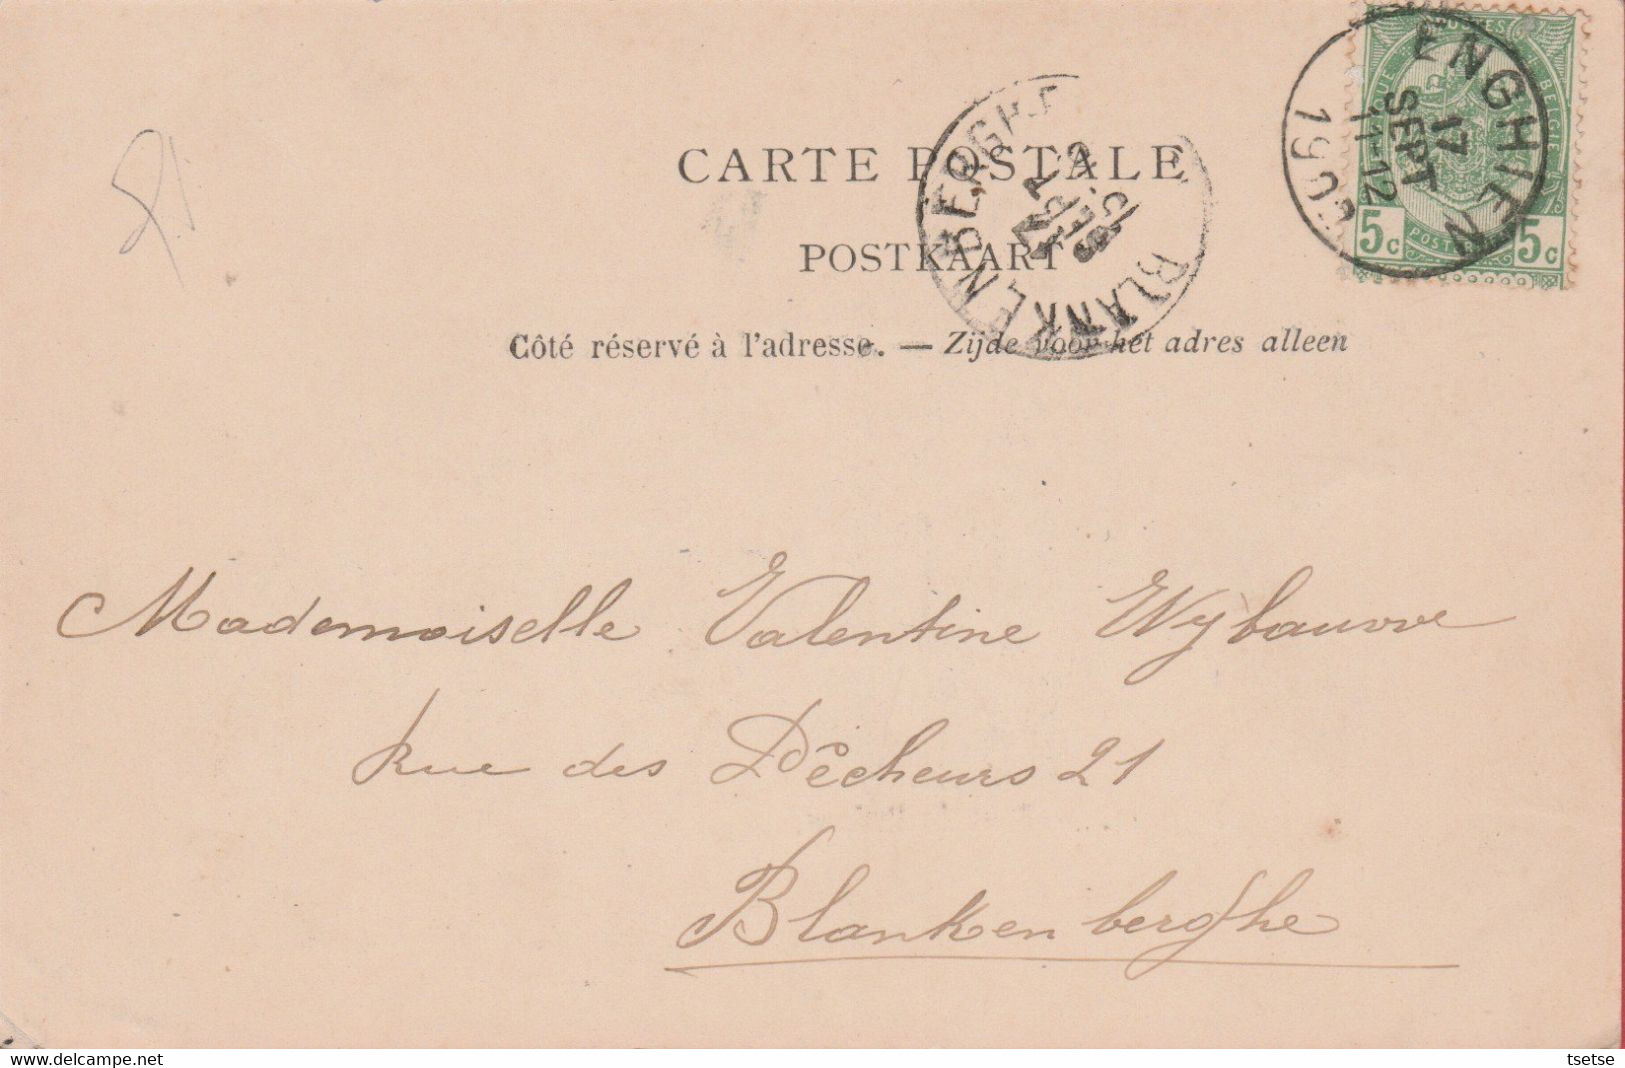 CARTE POSTALE
POSTKAART
Côté réservé à l'adresse. — Zijde voor het adres alleen
ENGHIEN
17
SEPT
11-12
BLANKENBERGHE
5c 5c
Mademoiselle Valentine Wybauwe
Rue des Pêcheurs 21
Blankenberghe
delcampe.net
tsetse